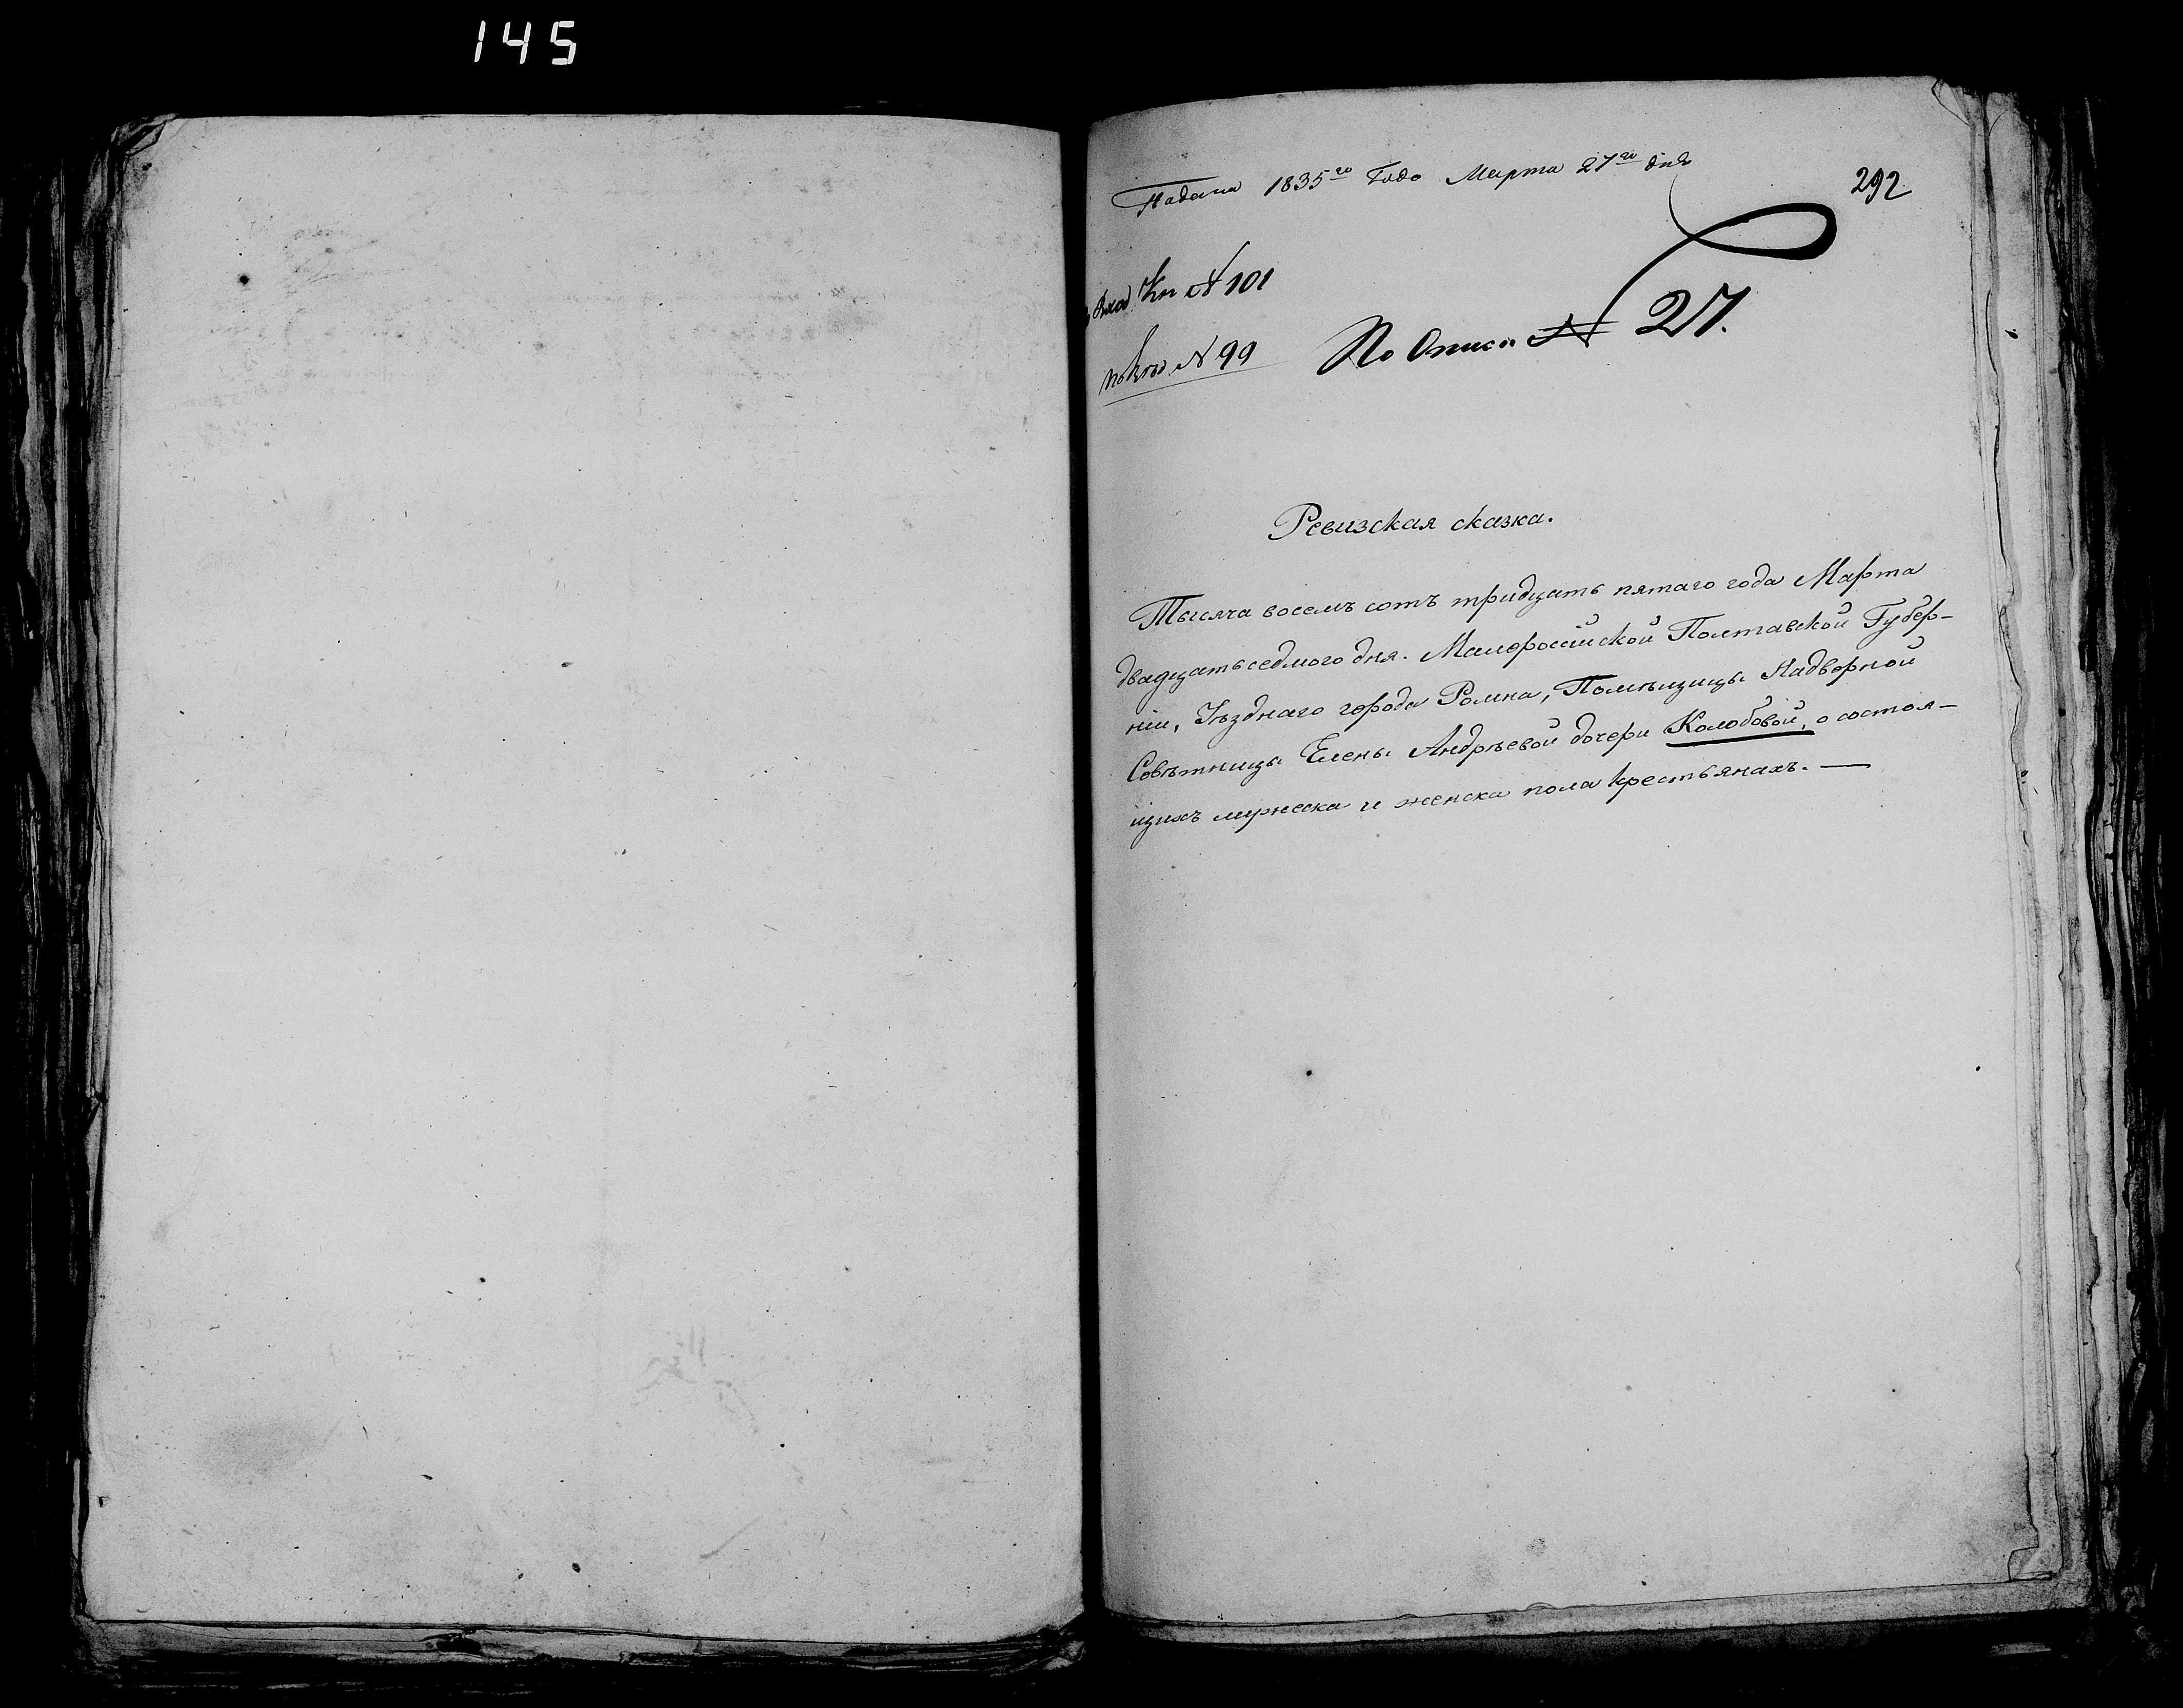 145
Подана 1835го Года Марта 27го дня
292
Вход. Кн №101
№ 99
По Описи № 27.
Ревизская сказка.
Тысяча восемъ сотъ тридцать пятаго года Марта
двадцать седмого дня. Малороссійской Полтавской Губер-
ніи, Уѣзднаго города Ромна, Помѣщицы Надворной
Совѣтницы Елены Андрѣевой дочери Колобовой, о состоя-
щихъ мужеска и женска пола крестьянахъ. —